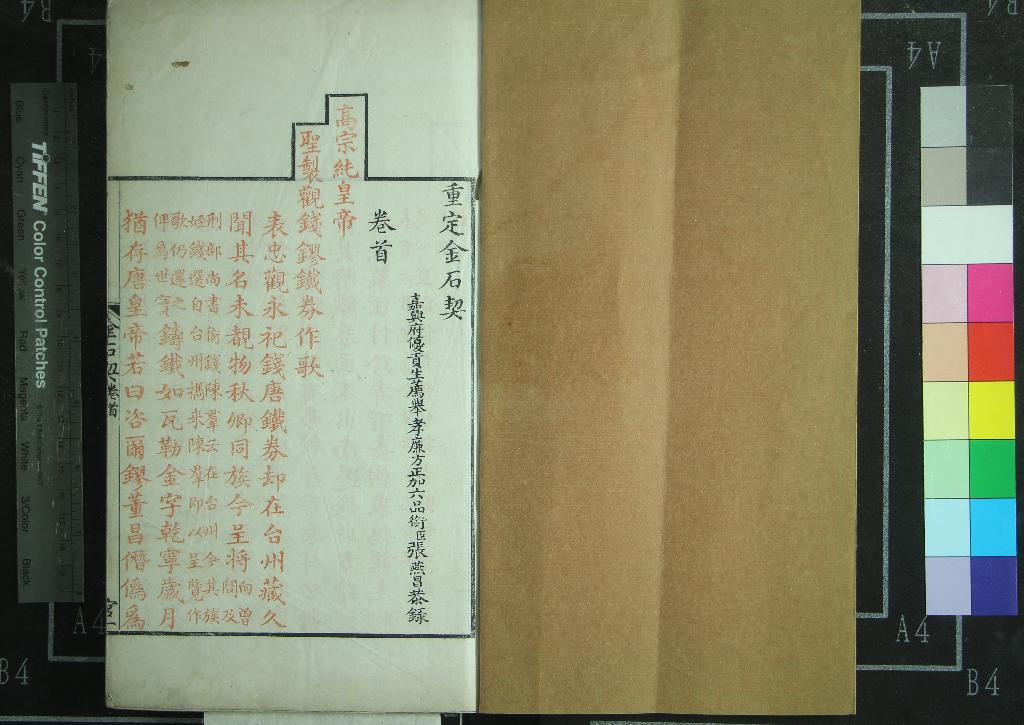 重定金石契
嘉興府優貢生薦舉孝廉方正加六品銜臣張燕昌恭錄
卷首
高宗純皇帝
聖製觀錢鏐鐵券作歌
表忠觀永祀錢唐鐵券却在台州藏久
聞其名未覩物秋卿同族今呈將向曾問及
刑部尚書銜錢陳羣云在台州今其族
姪錢選自台州攜來陳羣即以呈覽作
歌仍還之
俾為世寶鑄鐵如瓦勒金字乾寧歲月
猶存唐皇帝若曰咨爾鏐董昌僭偽為
金石契卷首
宮一
TIFFEN Color Control Patches
Blue Cyan Green Yellow Red Magenta White 3/Color Black
A4
A4
A4
B4
B4
B4